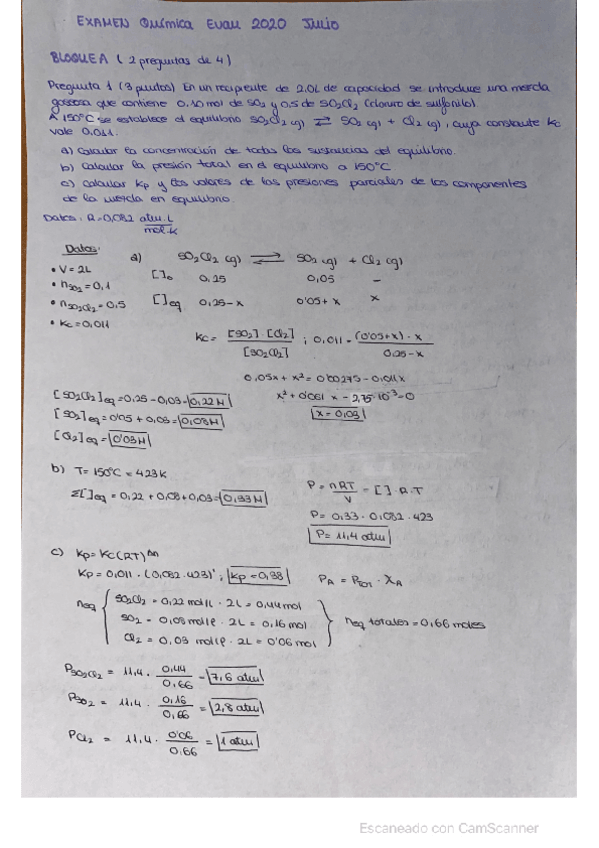 EXAMEN Química Evau 2020 Julio
BLOQUE A ( 2 preguntas de 4)
Pregunta 1 (3 puntos) En un recipiente de 2.0L de capacidad se introduce una mezcla
gaseosa que contiene 0.10 mol de SO2 y 0.5 de SO2Cl2 (cloruro de sulfonilo)
A 150°C se establece el equilibrio SO2Cl2 (g) ⇄ SO2 (g) + Cl2 (g), cuya constante Kc
vale 0.011.
a) Calcular la concentración de todas las sustancias del equilibrio.
b) Calcular la presión total en el equilibrio a 150°C
c) Calcular Kp y los valores de las presiones parciales de los componentes
de la mezcla en equilibrio.
Datos: R=0,082 atm.L/mol.K
Datos:
• V=2L
• nSO2=0,1
• nSO2Cl2=0,5
• Kc=0,011
a) SO2Cl2 (g) ⇄ SO2 (g) + Cl2 (g)
[ ]o 0,25 0,05 -
[ ]eq 0,25-x 0'05+x x
Kc= [SO2].[Cl2]/[SO2Cl2] ; 0,011 = (0'05+x).x/0.25-x
0,05x + x² = 0'00275-0,011x
x² + 0'061 x - 2,75.10⁻³=0
x = 0,03
[SO2Cl2]eq=0,25-0,03=0,22M
[SO2]eq=0'05+0,03=0,08M
[Cl2]eq=0'03M
b) T=150°C = 423K
Σ[ ]eq = 0,22+0,08+0,03=0,33M
P= nRT/V = [ ].R.T
P= 0,33.0,082.423
P= 11,4 atm
c) Kp=Kc(RT)^Δn
Kp= 0,011.(0,082.423)¹ ; Kp=0,38
PA = PTOT . XA
neq
SO2Cl2 = 0,22 mol/L . 2L = 0,44 mol
SO2 = 0,08 mol/l . 2L = 0,16 mol
Cl2 = 0,03 mol/l . 2L = 0'06 mol
neq totales=0,66 moles
PSO2Cl2 = 11,4 . 0,44/0,66 = 7,6 atm
PSO2 = 11,4 . 0,16/0,66 = 2,8 atm
PCl2 = 11,4 . 0'06/0,66 = 1 atm
Escaneado con CamScanner